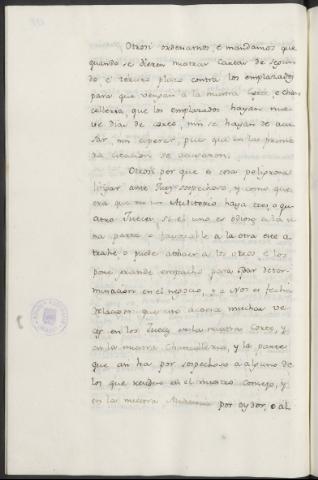 Otrosi ordenamos, e mandamos que
quando se dieren nuestras Cartas de segun
do e tercero plazo contra los emplazados
para que vengan a la nuestra Corte, e Chan
celleria, que los emplazados hayan nue
ve dias de Corte, nin se hayan de acu
sar, nin esperar, pues que en la prime
ra citacion se acusaron.
Otrosi por que es cosa peligrosa
litigar ante Juez sospechoso, y como quie
ra que en un Auditorio haya tres, o qu
atro Jueces, si el uno es odioso a la u
na parte o favorable a la otra este a
trahe o puede atraer a los otros e los
pone grande empacho para dar deter
minacion en el negocio, e a Nos es fecha
relacion que esto acaesce muchas ve
ces en los Jueces en la nuestra Corte, y
en la nuestra Chancelleria, y la parte
que an ha por sospechoso a alguno de
los que residen en el nuestro Consejo, y
en la nuestra Audiencia por oydor, o al